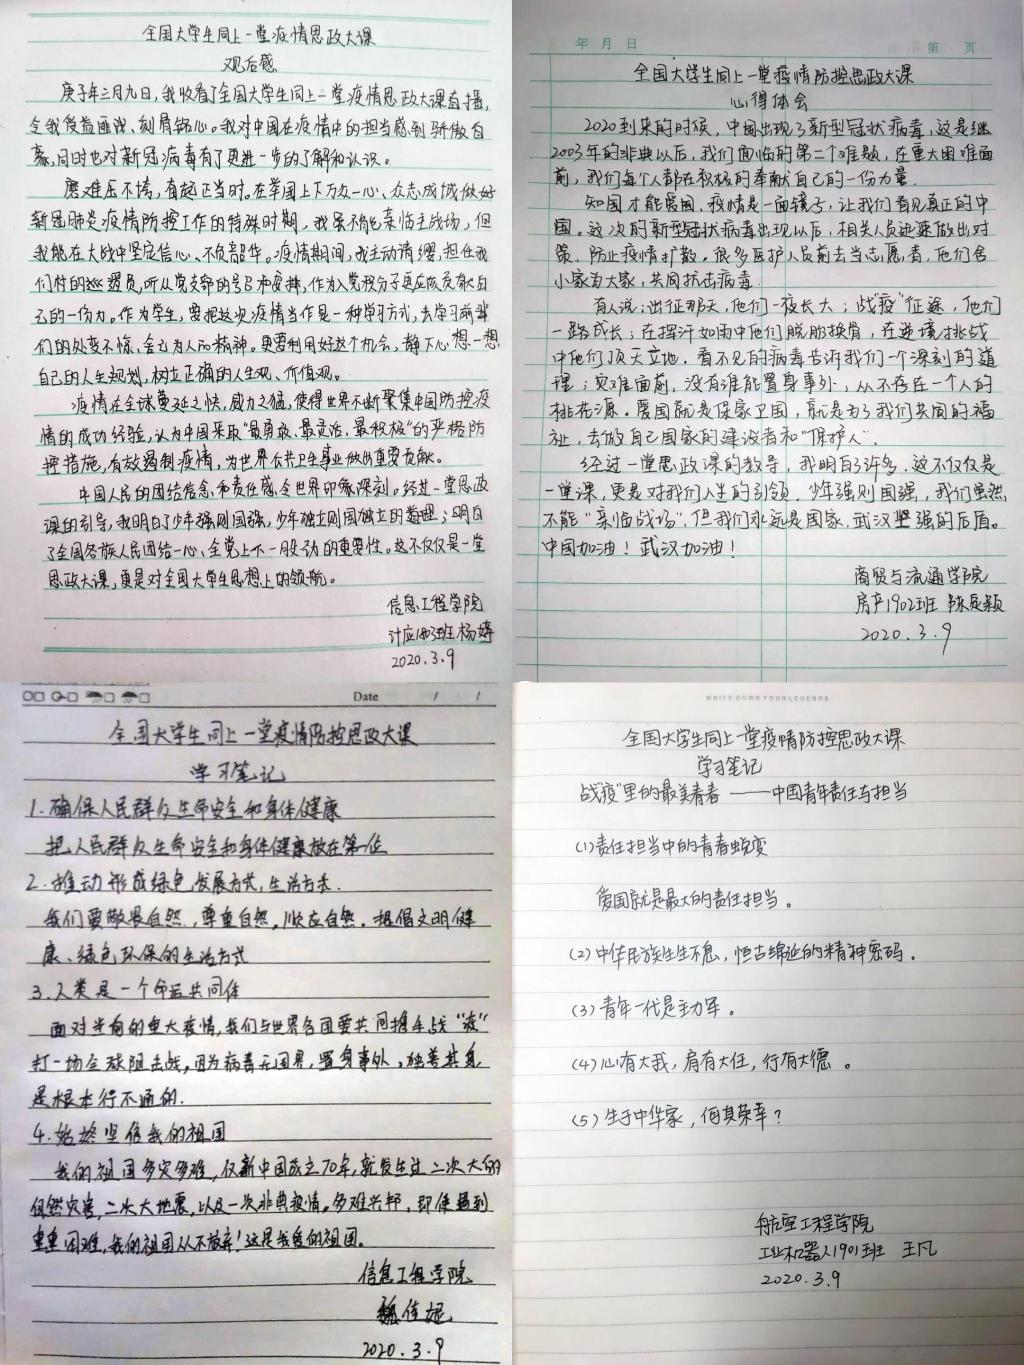 全国大学生同上一堂疫情思政大课
观后感
庚子年三月九日，我收看了全国大学生同上一堂疫情思政大课直播，
令我受益匪浅、刻骨铭心。我对中国在疫情中的担当感到骄傲自
豪，同时也对新冠病毒有了更进一步的了解和认识。
磨难压不垮，奋起正当时。在举国上下万众一心、众志成城做好
新冠肺炎疫情防控工作的特殊时期，我虽不能亲临主战场，但
我能在大战中坚定信心、不负韶华。疫情期间，我主动请缨，担任我
们村的巡逻员，听从党支部的号召和安排，作为入党积分子更应该贡献自
己的一份力。作为学生，要把这次疫情当作是一种学习方式，去学习前辈
们的处变不惊、舍己为人的精神。更要利用好这个机会，静下心想一想
自己的人生规划，树立正确的人生观、价值观。
疫情在全球蔓延之快，威力之猛，使得世界不断聚集中国防控疫
情的成功经验，认为中国采取“最勇敢、最灵活、最积极”的严格防
控措施，有效遏制疫情，为世界公共卫生事业做出重要贡献。
中国人民的团结信念和责任感令世界印象深刻。经过一堂思政
课的引导，我明白了少年强则国强，少年独立则国独立的道理；明白
了全国各族人民团结一心、全党上下一股劲的重要性。这不仅仅是一堂
思政大课，更是对全国大学生思想上的领航。
信息工程学院
计应1803班 杨婷
2020.3.9
年 月 日
第 页
全国大学生同上一堂疫情防控思政大课
心得体会
2020到来的时候，中国出现了新型冠状病毒，这是继
2003年的非典以后，我们面临的第二个难题，在重大困难面
前，我们每个人都在积极的奉献自己的一份力量
知国才能爱国，疫情是一面镜子，让我们看见真正的中
国。这次的新型冠状病毒出现以后，相关人员迅速做出对
策、防止疫情扩散。很多医护人员前去当志愿者，他们舍
小家为大家，共同抗击病毒
有人说：出征那天，他们一夜长大；战疫”征途，他们
一路成长；在挥汗如雨中他们脱胎换骨，在逆境挑战
中他们顶天立地。看不见的病毒告诉我们一个深刻的道
理；灾难面前，没有谁能置身事外，从不存在一个人的
桃花源。爱国就是保家卫国，就是为了我们共同的福
祉，去做自己国家的建设者和“保护人”.
经过一堂思政课的教导，我明白了许多.这不仅仅是
一堂课，更是对我们人生的引领，少年强则国强，我们虽然
不能“亲临战场”，但我们永远是国家、武汉坚强的后盾。
中国加油！武汉加油！
商贸与流通学院
房产1902班
2020.3.9
Date / /
全国大学生同上一堂疫情防控思政大课
学习笔记
1.确保人民群众生命安全和身体健康
把人民群众生命安全和身体健康放在第一位
2.推动形成绿色发展方式，生活方式.
我们要敬畏自然，尊重自然，顺应自然，提倡文明健
康、绿色环保的生活方式
3.人类是一个命运共同体
面对当前的重大疫情，我们与世界各国要共同携手战“疫”
打一场全球阻击战，因为病毒无国界，置身事外，独善其身
是根本行不通的.
4.始终坚信我的祖国
我的祖国多灾多难，仅新中国成立70年，就发生过二次大的
自然灾害，二次大地震，以及一次非典疫情。多难兴邦，即使遇到
重重困难，我的祖国从不放弃！这是我爱的祖国。
信息工程学院
魏佳妮
2020.3.9
WRITE DOWN YOUR LEGENDS
全国大学生同上一堂疫情防控思政大课
学习笔记
战疫”里的最美青春——中国青年责任与担当
(1)责任担当中的青春蜕变
爱国就是最大的责任担当。
(2)中华民族生生不息，恒古绵延的精神密码。
(3)青年一代是主力军。
(4)心有大我，肩有大任，行有大德。
(5)生于中华家，何其荣幸？
航空工程学院
工业机器人1901班 王凡
2020.3.9